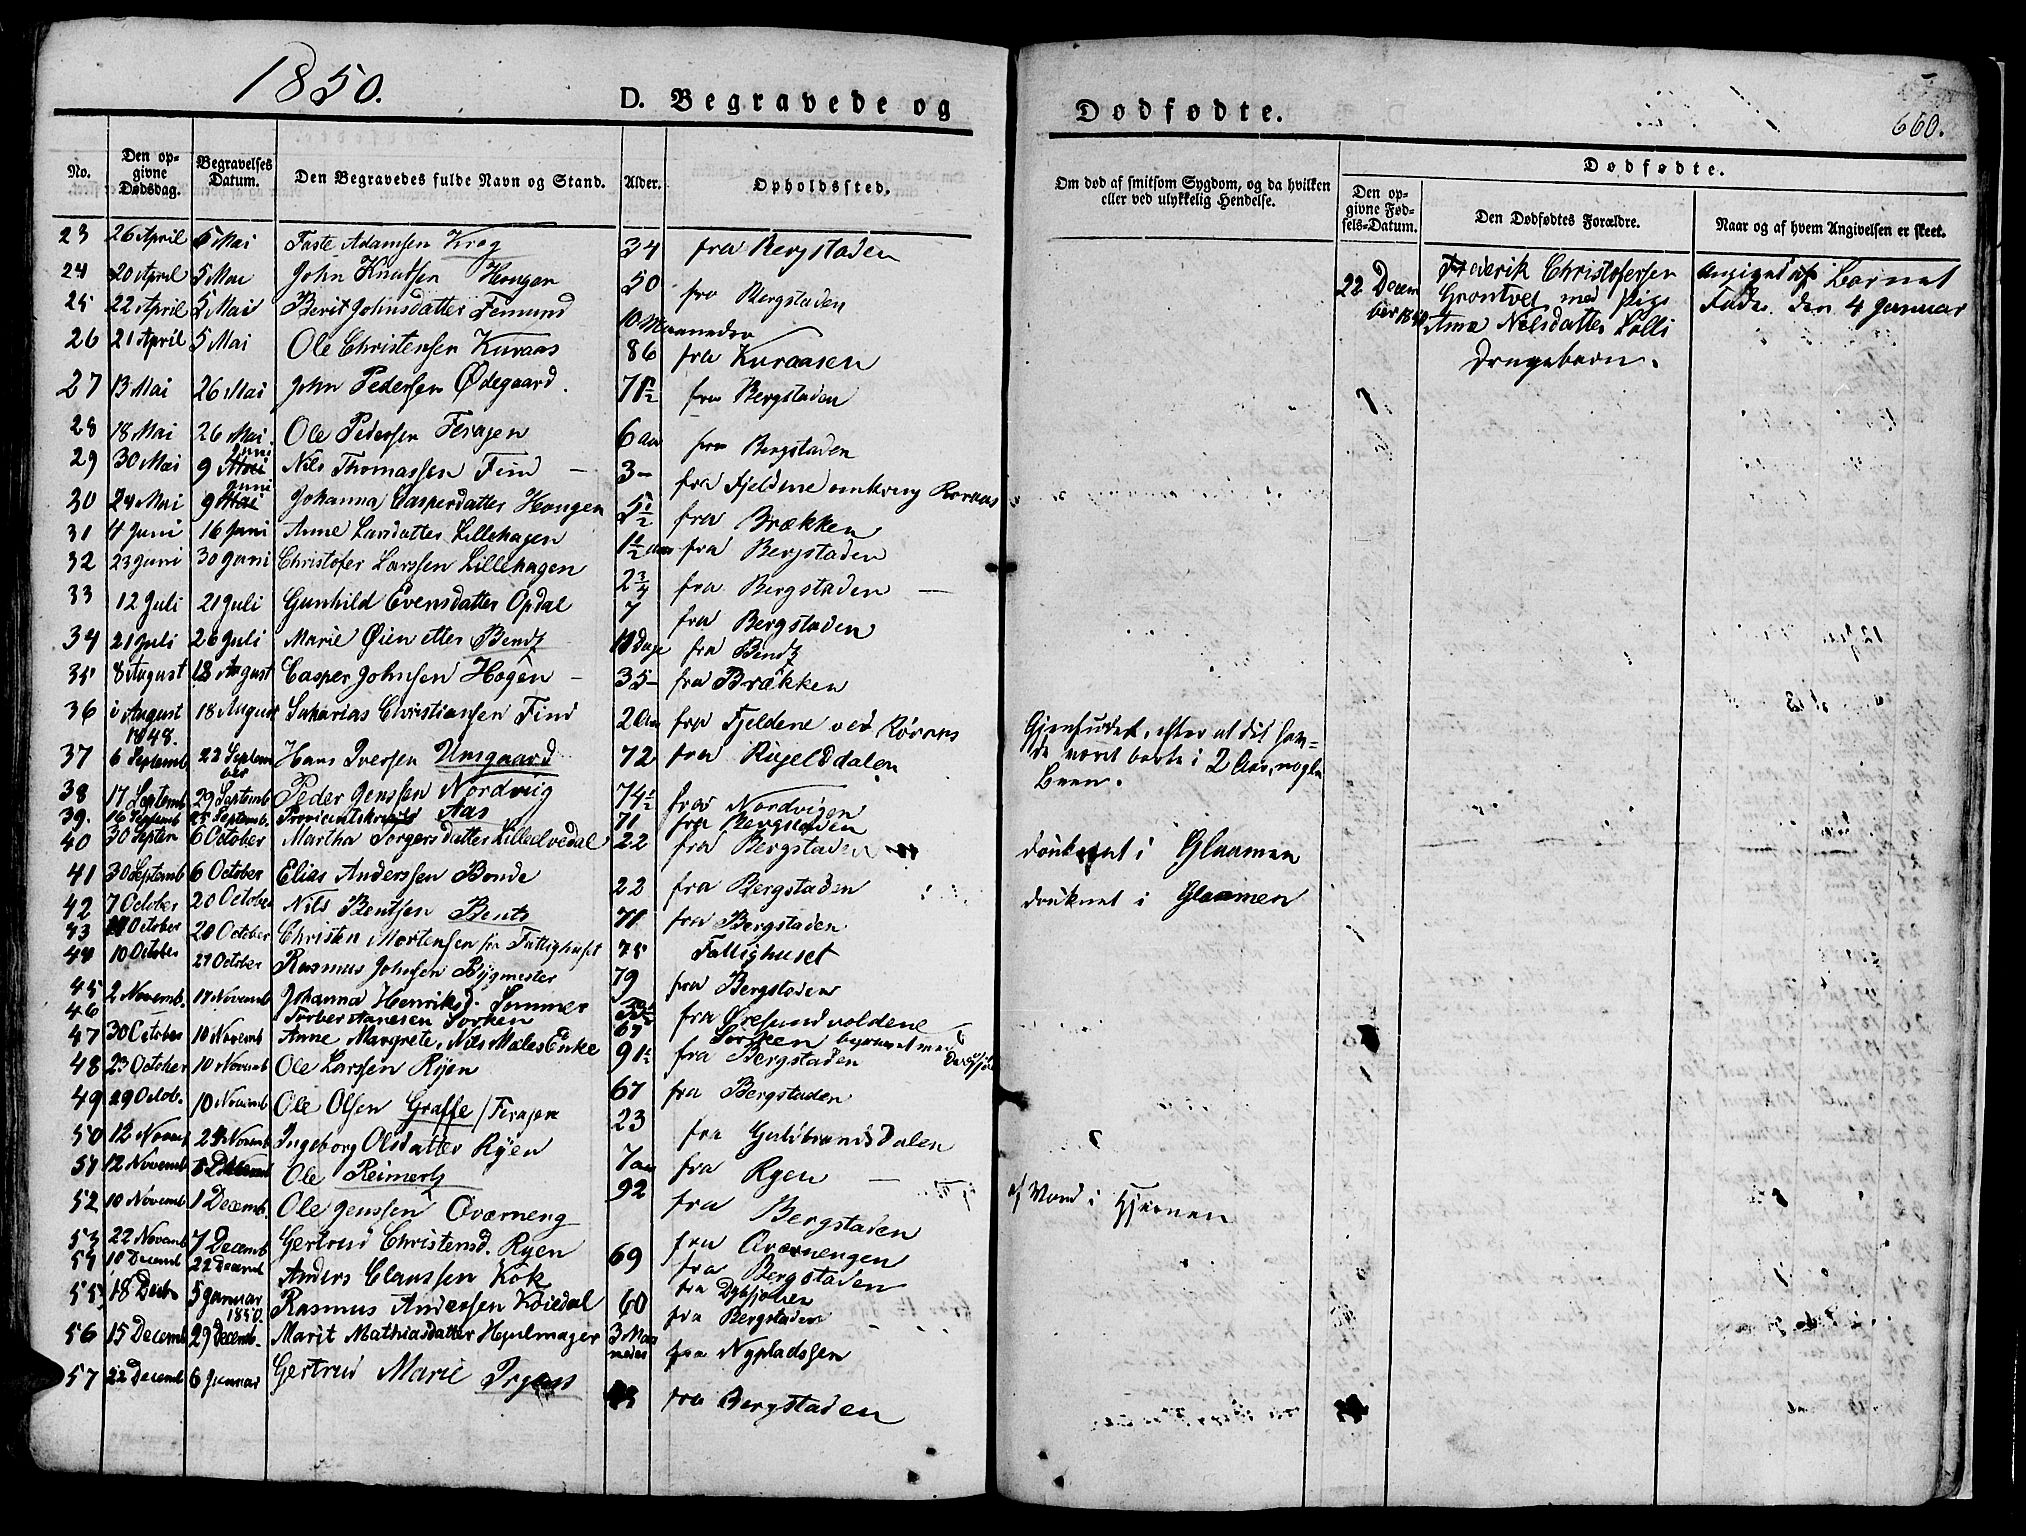 1850.
D. Begravede og
No. | Den opgivne Dødsdag. | Begravelses Datum. | Den Begravedes fulde Navn og Stand. | Alder. | Opholdssted.
23 26 April 5 Mai Taste Adamsen Krog 34 fra Bergstaden
24 20 April 5 Mai John Knutsen Hougen 50 fra Bergstaden
25 22 April 5 Mai Berit Johnsdatter Femund 10 Maaneder
26 21 April 5 Mai Ole Christensen Kuraas 86 fra Kuraasen
27 13 Mai 26 Mai John Pedersen Ødegaard. 71 1/2 fra Bergstaden
28 18 Mai 26 Mai. Ole Pedersen Feragen 6 Aar fra Bergstaden
29 30 Mai 9 Juni Nils Thomassen Find — 3– fra Fjeldene omkring Røraas
30 24 Mai 9 Juni Johanna Caspersdatter Hougen 5 1/2 fra Brækken
31 4 Juni 16 Juni Anne Larsdatter Lillehagen 1 1/2 Aar fra Bergstaden
32 23 Juni 30 Juni Christofer Larssen Lillehagen 2 3/4 fra Bergstaden —
33 12 Juli 21 Juli Gunhild Evensdatter Opdal 7 fra Bergstaden
34 21 Juli 26 Juli Marie Øien etter Bentz Dage fra Bentz
35 8 August 18 August Casper Johnsen Hogen — 35– fra Brækken
36 i August 1848. 18 August Sakarias Christiansen Find 20 Aar fra Fjeldene ved Røraas
37 6 Septemb 22 September Hans Iversen Unsgaard 72 fra Rugeldalen
38 17 Septemb 29 Septemb Peder Jenssen Nordvig 74 1/2 fra Nordvigen
39. 16 Septemb 25 Septemb. Aas 71 fra Bergstaden
40 30 Septem 6 October Martha Torgersdatter Lilleelvedal 22 fra Bergstaden
41 30 Septemb 6 October Elias Anderssen Bonde 22 fra Bergstaden
42 7 October 20 October Nils Bentsen Bents 71 fra Bergstaden
43 October 20 October Christen Mortensen fra Fattighuset 75 Fattighuset
44 10 October 27 October Rasmus Johnsen Bygmester 79 fra Bergstaden
45 2 Novemb. 17 Novemb Johanna Henriksd. Sommer fra Øresundvoldene
46 Sorken 67 Sorken begravet med
47 30 October 10 Novemb Anne Margrete, Nils Møles Enke 91 1/2 fra Bergstaden
48 23 October 10 Novemb Ole Larssen Ryen 67 fra Bergstaden
49 29 Octob. 10 Novemb Ole Olsen Graffe / Feragen 23 fra Gulbrandsdalen
50 12 Novem 24 Novemb Ingeborg Olsdatter Ryen 7 Aar fra Ryen —
51 12 Novemb Ole Reimertz 92 fra Bergstaden
52 10 Novemb 1 Decemb. Ole Jenssen Qværneng fra Qværnengen
53 22 Novemb 7 Decemb Gertrud Christensd. Ryen 69 fra Bergstaden
54 10 Decemb 22 Decemb Anders Claussen Kok
55 18 Decb 5 Januar 1850. Rasmus Anderssen Koiedal 60 fra Bergstaden
56 15 Decemb 29 Decemb. Marit Mathiasdatter Hjulmager 3 Maaneder fra Nypladsen
57 22 Decemb 6 Januar Gertrud Marie Irgens fra Bergstaden
Dødfødte.
660.
Om død af smitsom Sygdom, og da hvilken eller ved ulykkelig Hendelse. | Dødfødte.
Den opgivne Fødsels-Datum. | Den Dødfødtes Forældre. | Naar og af hvem Angivelsen er skeet.
22 Decem Frederik Christofersen Angived af Barnet
ber Grøntvet med Pige Fader den 4 Januar
Anne Nilsdatter Lolli
Drengebarn.
Gjenfundet, efter at det hav-
de været borte i 2 Aar, nogle
Been.
druknet i Glaamen
druknet i Glaamen
af Vand i Hjernen